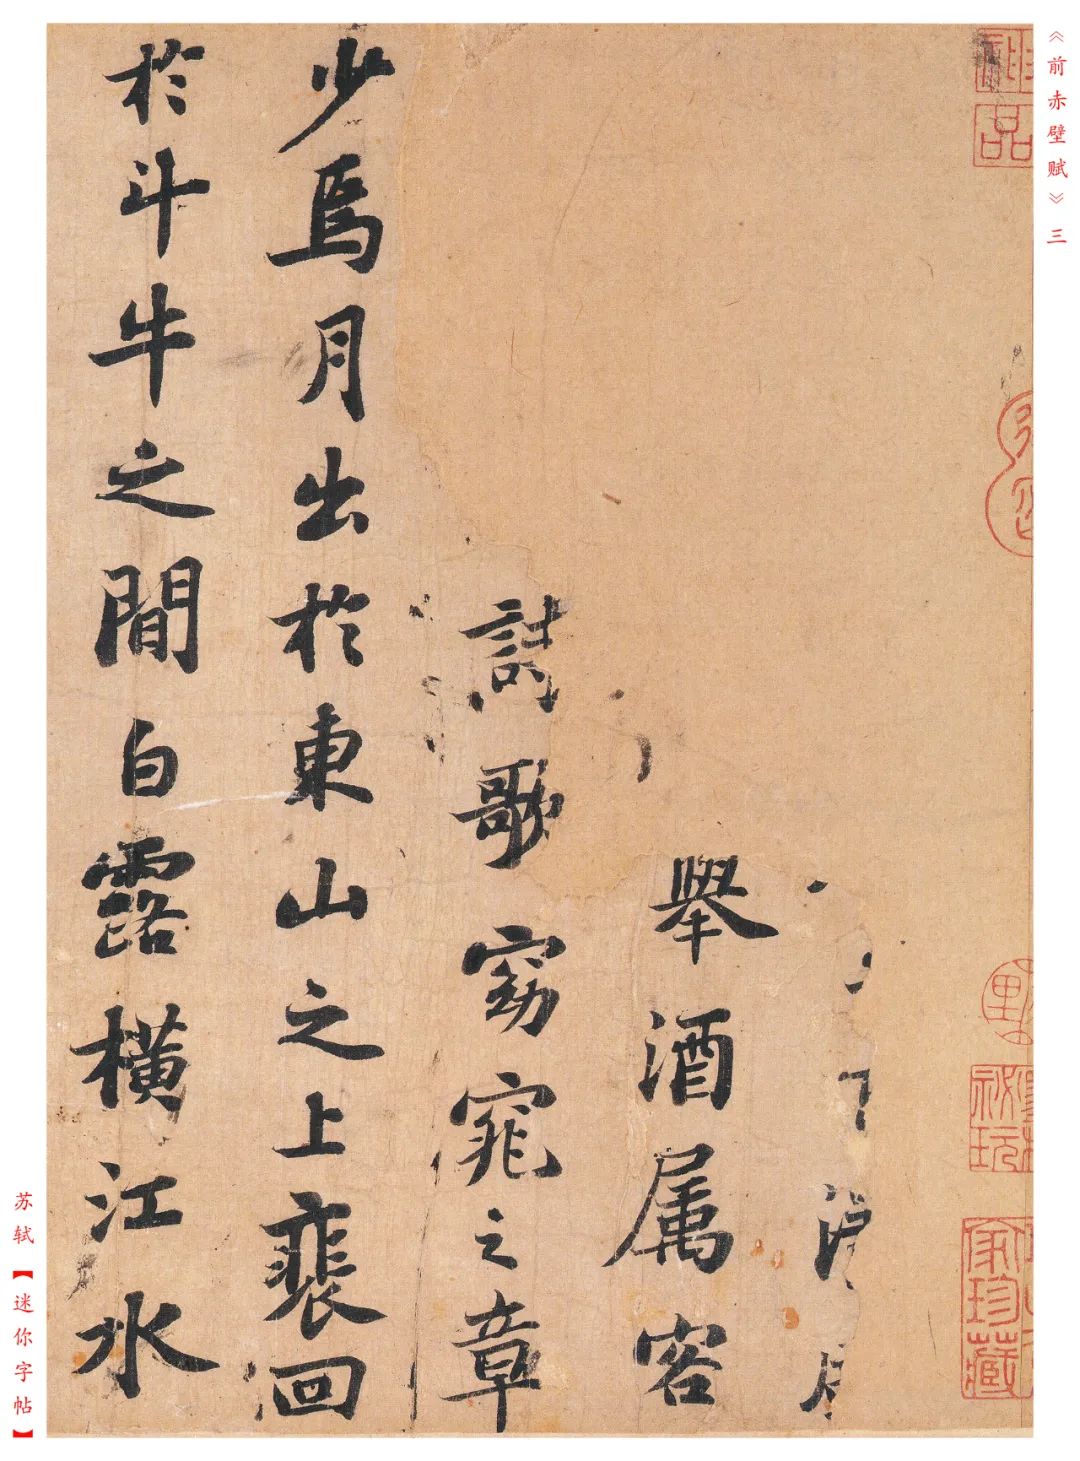 《前赤壁赋》三
舉酒属客
歌窈窕之章
少焉月出於東山之上裴回
於斗牛之間白露橫江水
家珍藏
苏轼【迷你字帖】